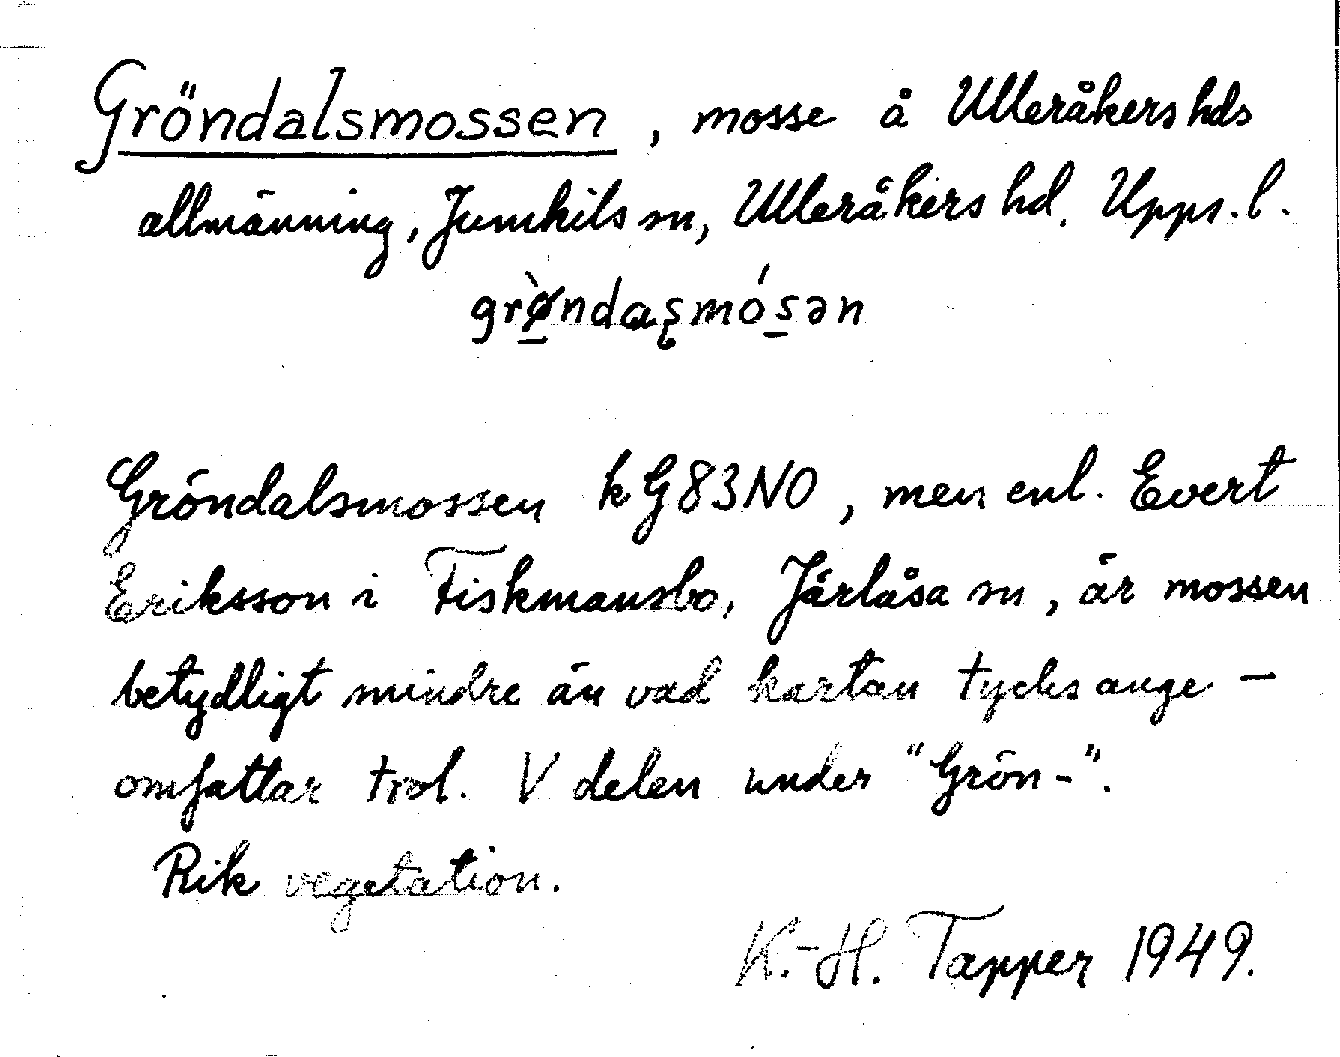 Gröndalsmossen, mosse å Ulleråkers hds
allmänning, Jumkils sn, Ulleråkers hd. Upps. l.
grø̀ndaʂmósən
Gröndalsmossen kG83NO, men enl. Evert
Eriksson i Fiskmansbo, Järlåsa sn, är mossen
betydligt mindre än vad kartan tycks ange –
omfattar trol. V delen under "Grön-".
Rik vegetation.
K.-H. Tapper 1949.